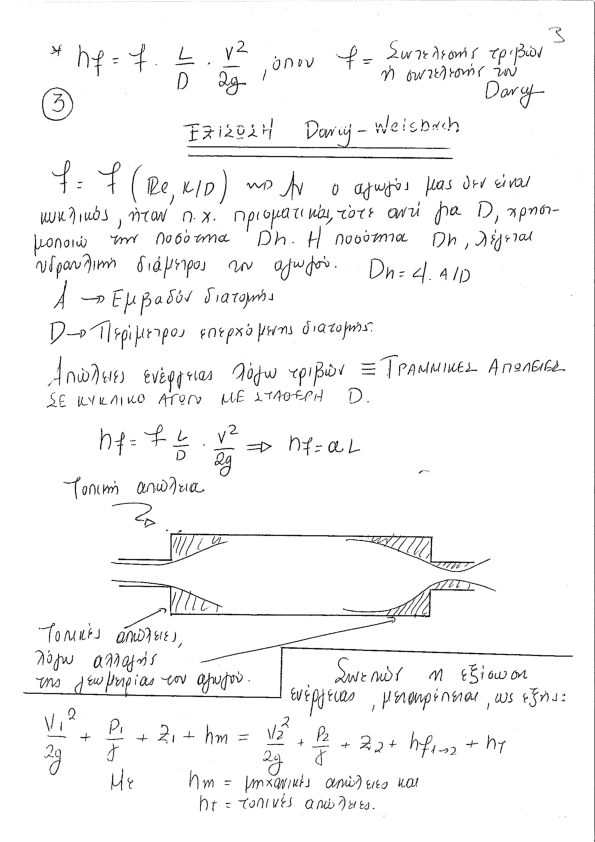 3
* hf = f · L/D · V²/2g , όπου f = Συντελεστής τριβών
ή συντελεστής του
Darcy
③
ΕΞΙΣΩΣΗ Darcy - Weisbach
f = f (Re, K/D) ⇝ Αν ο αγωγός μας δεν είναι
κυκλικός, ήταν π.χ. πρισματικός, τότε αντί για D, χρησι-
μοποιώ την ποσότητα Dh. Η ποσότητα Dh, λέγεται
υδραυλική διάμετρος του αγωγού. Dh = 4. A/D
A → Εμβαδόν διατομής
D → Περίμετρος επερχόμενης διατομής.
Απώλειες ενέργειας λόγω τριβών ≡ ΓΡΑΜΜΙΚΕΣ ΑΠΩΛΕΙΕΣ
ΣΕ ΚΥΚΛΙΚΟ ΑΓΩΓΟ ΜΕ ΣΤΑΘΕΡΗ D.
hf = f L/D · V²/2g ⇒ hf = αL
Τοπική απώλεια
Τοπικές απώλειες,
λόγω αλλαγής
της γεωμετρίας του αγωγού.
Συνεπώς η εξίσωση
ενέργειας, μετατρέπεται, ως εξής:
V₁²/2g + P₁/γ + z₁ + hm = V₂²/2g + P₂/γ + z₂ + hf₁→₂ + hτ
Με hm = μηχανικές απώλειες και
hτ = τοπικές απώλειες.